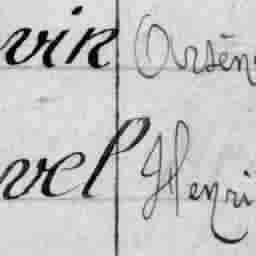 vin Arsèn
vel Henri